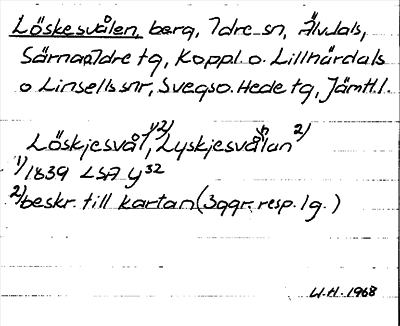 Löskesvålen, berg, Idre sn, Älvdals,
Särna-Idre tg, Kopp.l. o. Lillhärdals
o Linsells snr, Svegs o. Hede tg, Jämtl.l.
Löskjesvål 1)2), Lyskjesvålan 2)
1) 1839 LSA Y32
2) beskr. till kartan (3 ggr. resp. 1 g.)
U.H. 1968